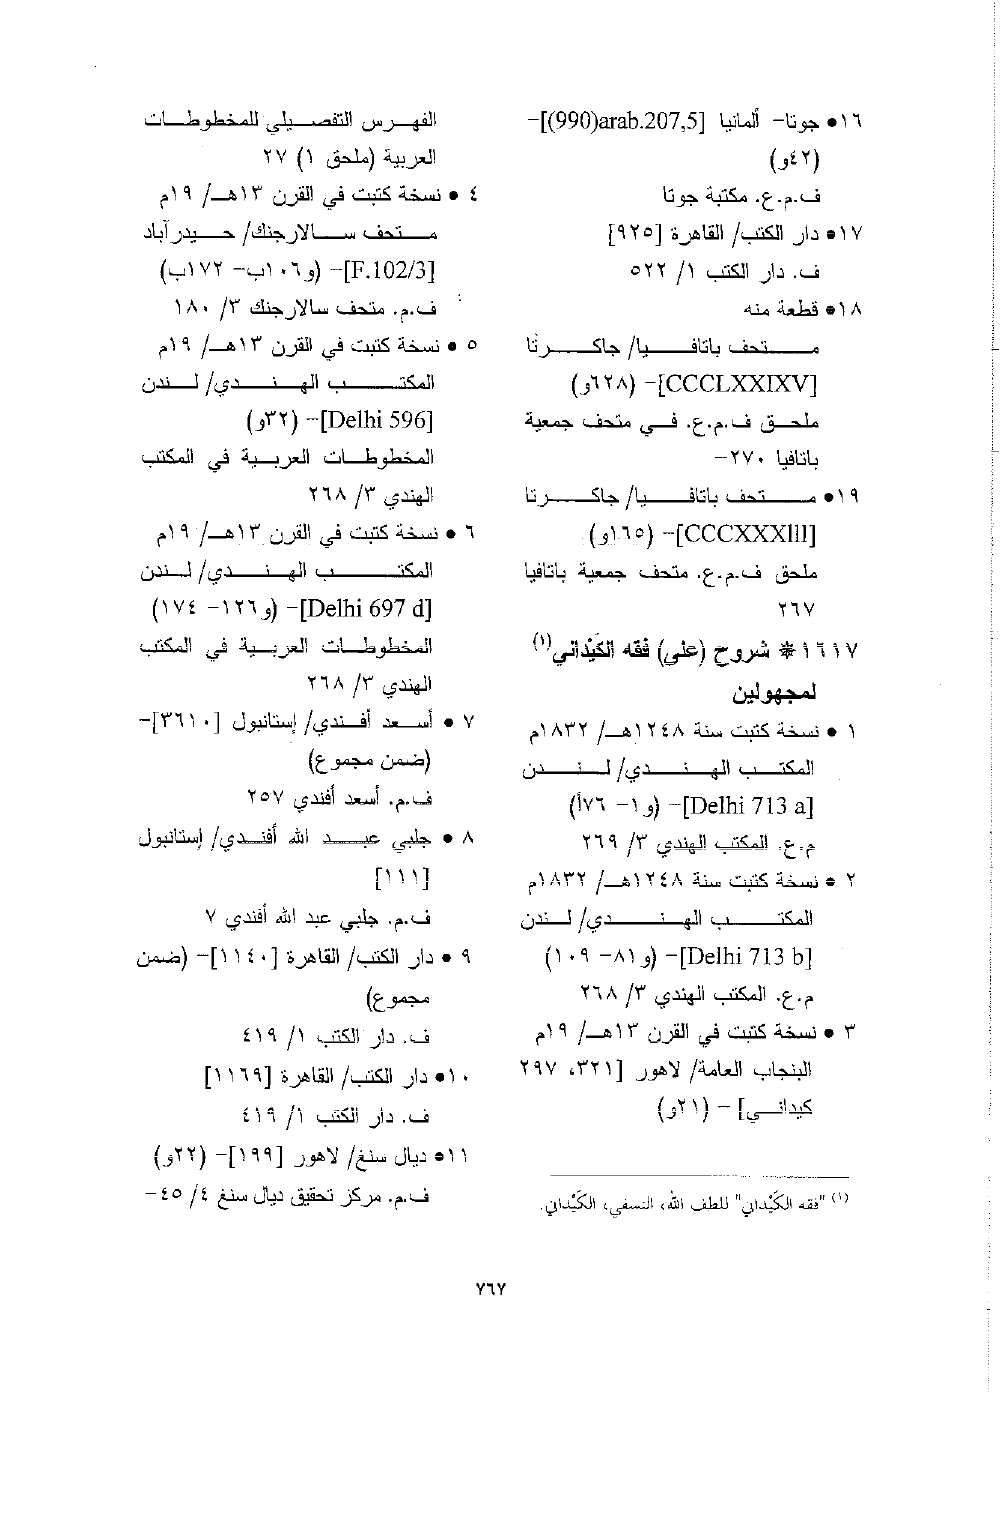 ١٦• جوتا- ألمانيا [(990)arab.207,5]-
(٤٢و)
ف.م.ع. مكتبة جوتا
١٧• دار الكتب/ القاهرة [٩٢٥]
ف. دار الكتب ١/ ٥٢٢
١٨• قطعة منه
متحف باتافيا/ جاكرتا
[CCCLXXIXV]- (٦٢٨و)
ملحق ف.م.ع. في متحف جمعية
باتافيا ٢٧٠-
١٩• متحف باتافيا/ جاكرتا
[CCCXXXlll]- (١٦٥و)
ملحق ف.م.ع. متحف جمعية باتافيا
٢٦٧
١٦١٧ * شروح (على) فقه الكَيْداني(١)
لمجهولين
١ • نسخة كتبت سنة ١٢٤٨هـ/ ١٨٣٢م
المكتب الهندي/ لندن
[Delhi 713 a]- (و١- ٧٦أ)
م.ع. المكتب الهندي ٣/ ٢٦٩
٢ • نسخة كتبت سنة ١٢٤٨هـ/ ١٨٣٢م
المكتب الهندي/ لندن
[Delhi 713 b]- (و٨١- ١٠٩)
م.ع. المكتب الهندي ٣/ ٢٦٨
٣ • نسخة كتبت في القرن ١٣هـ/ ١٩م
البنجاب العامة/ لاهور [٣٢١، ٢٩٧
كيداني] - (٢١و)
(١) "فقه الكَيْداني" للطف الله، النسفي، الكَيْداني.
الفهرس التفصيلي للمخطوطات
العربية (ملحق ١) ٢٧
٤ • نسخة كتبت في القرن ١٣هـ/ ١٩م
متحف سالارجنك/ حيدرآباد
[F.102/3]- (و١٠٦ب- ١٧٢ب)
ف.م. متحف سالارجنك ٣/ ١٨٠
٥ • نسخة كتبت في القرن ١٣هـ/ ١٩م
المكتب الهندي/ لندن
[Delhi 596]- (٣٢و)
المخطوطات العربية في المكتب
الهندي ٣/ ٢٦٨
٦ • نسخة كتبت في القرن ١٣هـ/ ١٩م
المكتب الهندي/ لندن
[Delhi 697 d]- (و١٢٦- ١٧٤)
المخطوطات العربية في المكتب
الهندي ٣/ ٢٦٨
٧ • أسعد أفندي/ إستانبول [٣٦١٠]-
(ضمن مجموع)
ف.م. أسعد أفندي ٢٥٧
٨ • جلبي عبد الله أفندي/ إستانبول
[١١١]
ف.م. جلبي عبد الله أفندي ٧
٩ • دار الكتب/ القاهرة [١١٤٠]- (ضمن
مجموع)
ف. دار الكتب ١/ ٤١٩
١٠• دار الكتب/ القاهرة [١١٦٩]
ف. دار الكتب ١/ ٤١٩
١١• ديال سنغ/ لاهور [١٩٩]- (٢٢و)
ف.م. مركز تحقيق ديال سنغ ٤/ ٤٥-
٧٦٧